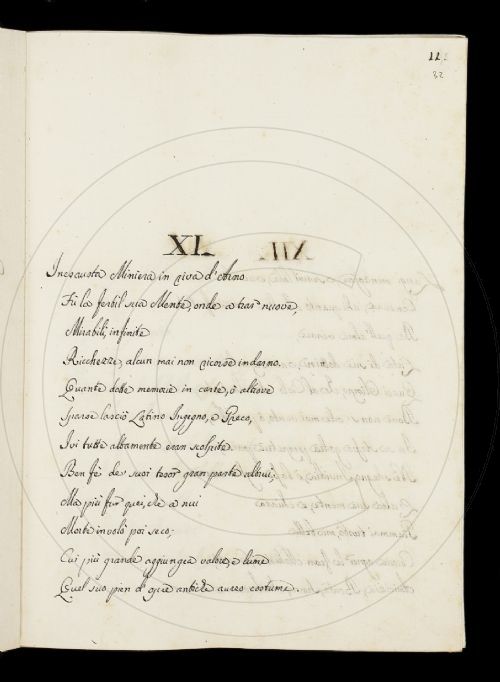 11.
32
XI.
Inesausta Miniera in riva d'Arno
Fù la fertil sua Mente, onde a trar nuove,
Mirabili, infinite
Ricchezze, alcun mai non ricorse indarno.
Quante dotte memorie in carte, ò altrove
Sparse lasciò Latino Ingegno, e Greco,
Ivi tutte altamente eran scolpite.
Ben fè de' suoi tesor' gran parte altrui,
Ma più fur quei, che a nui
Morte involò poi seco,
Cui più grande aggiungea valore, e lume
Quel suo pien d' antiche aureo costume.